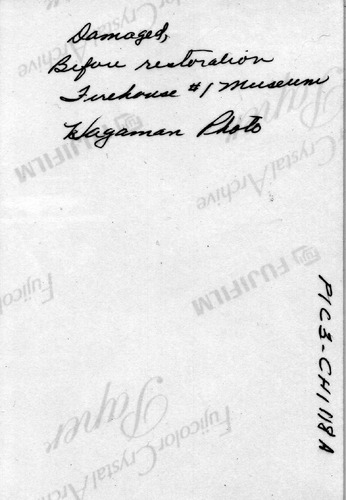 Damaged,
Before restoration
Firehouse #1 Museum
Wagaman Photo
PIC3-CH1118A
FUJIFILM
Fujicolor Crystal Archive
Paper
FUJIFILM
Crystal Archive
Paper
Fujicolor
Fujicolor Crystal Archive
Paper